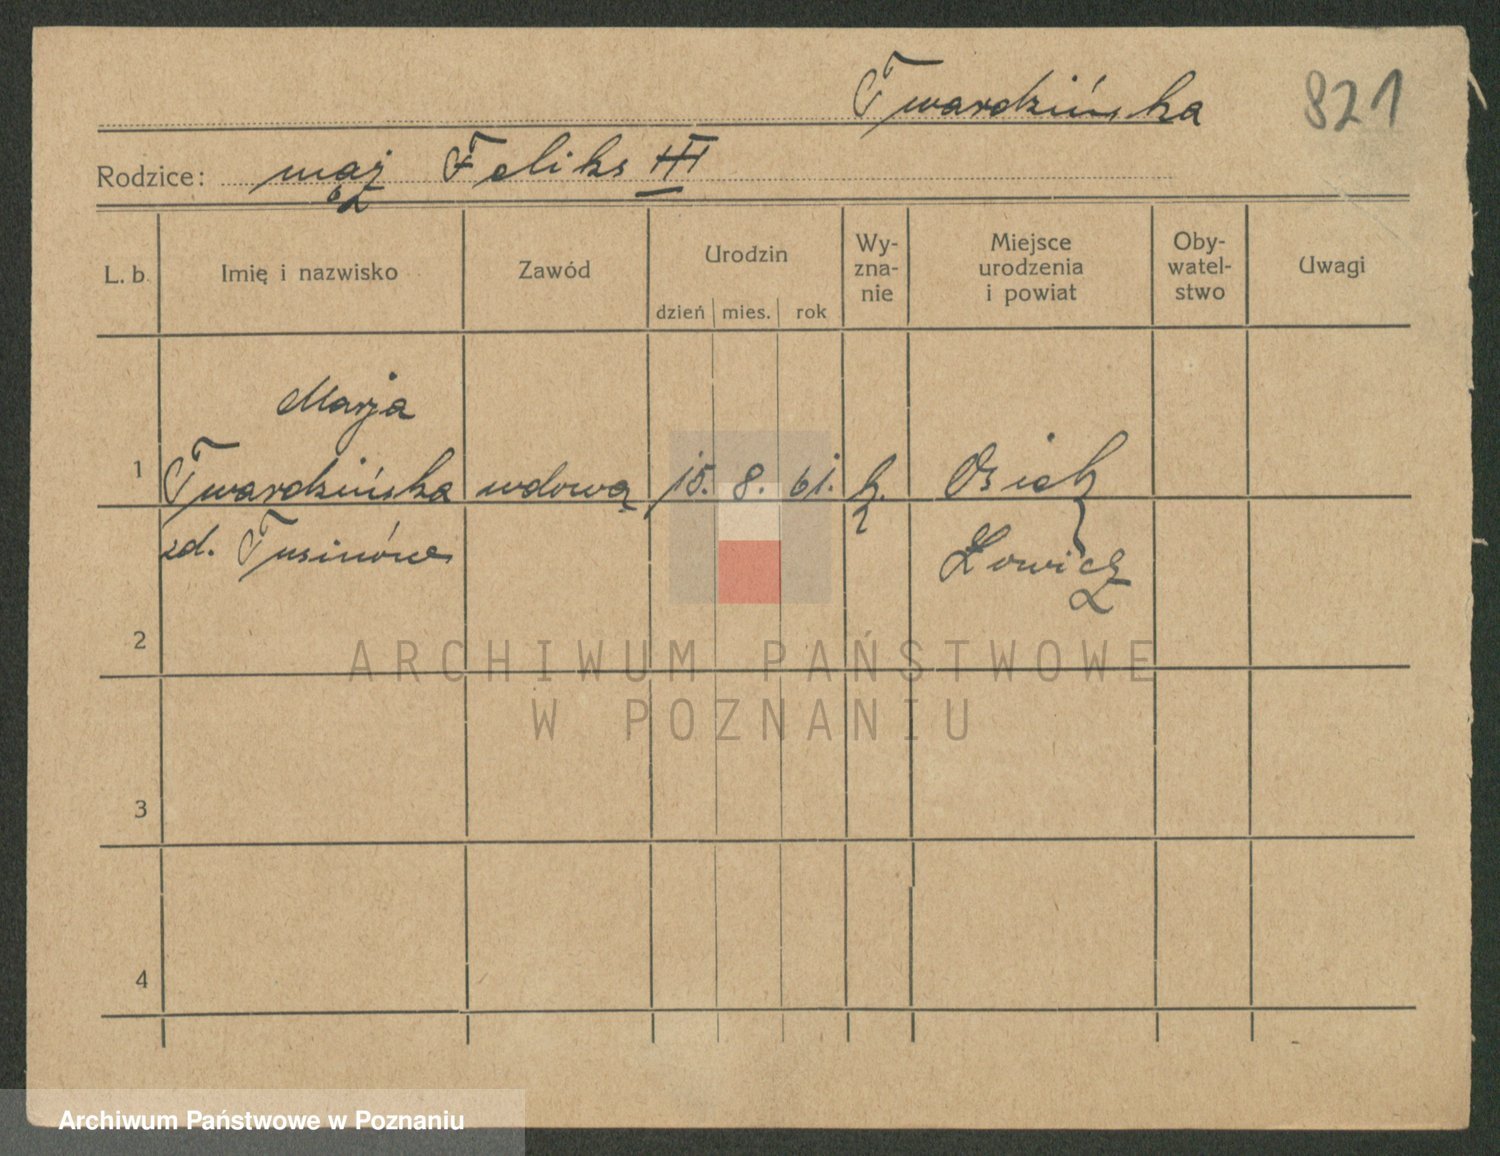 Twardzińska 821
Rodzice: mąż Feliks III
L. b. Imię i nazwisko Zawód Urodzin dzień mies. rok Wy-zna-nie Miejsce urodzenia i powiat Oby-watel-stwo Uwagi
Marja
1 Twardzińska wdowa 15. 8. 61. k. Osiek
zd. Łowicz
2
3
4
ARCHIWUM PAŃSTWOWE
W POZNANIU
Archiwum Państwowe w Poznaniu